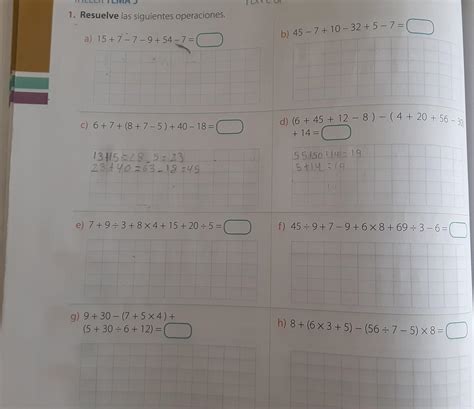 TALLER TEMA 5
1. Resuelve las siguientes operaciones.
a) 15 + 7 - 7 - 9 + 54 - 7 =
b) 45 - 7 + 10 - 32 + 5 - 7 =
c) 6 + 7 + (8 + 7 - 5) + 40 - 18 =
13+15=28-5=23
23+40=63-18=45
d) (6 + 45 + 12 - 8) - (4 + 20 + 56 - 30)
+ 14 =
55-50+14=19
5+14=19
e) 7 + 9 ÷ 3 + 8 × 4 + 15 + 20 ÷ 5 =
f) 45 ÷ 9 + 7 - 9 + 6 × 8 + 69 ÷ 3 - 6 =
g) 9 + 30 - (7 + 5 × 4) +
(5 + 30 ÷ 6 + 12) =
h) 8 + (6 × 3 + 5) - (56 ÷ 7 - 5) × 8 =